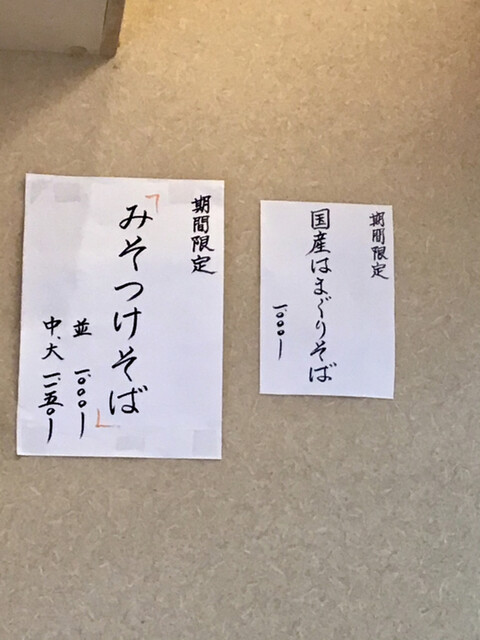 期間限定
国産はまぐりそば
一、〇〇〇ー
期間限定
「みそつけそば」
並 一、〇〇〇ー
中、大 一、一五〇ー